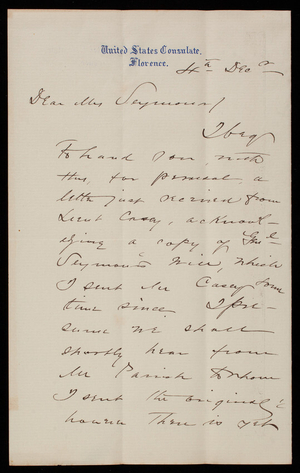 United States Consulate,
Florence.
4th Decr
Dear Mrs Seymour/
I beg
to hand you, with
this, for perusal, a
letter just received from
Lieut Casey, acknowl-
edging a copy of Genl
Seymour's Will, which
I sent Mr Casey some
time since. I pre-
sume we shall
shortly hear from
Mr Parish to whom
I sent the original &
however there is yet